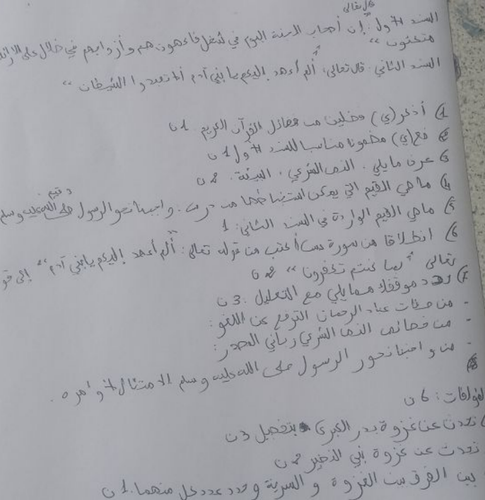 قال تعالى
السند الأول: "إن أصحاب الجنة اليوم في شغل فاكهون هم وأزواجهم في ظلال على الأرائك
متكئون"
السند الثاني: قال تعالى: "ألم أعهد إليكم يا بني آدم ألا تعبدوا الشيطان"
1) أذكر(ي) فضلين من فضائل القرآن الكريم. 1ن
2) ضع(ي) مضمونا مناسبا للسند الأول 1ن
3) عرف مايلي: النص الشرعي، البيئة. 2ن
4) ماهي القيم التي يمكن استنباطها من درس: واجبنا نحو الرسول صلى الله عليه وسلم
5) ماهي القيم الواردة في السند الثاني: 1
6) انطلاقا من سورة يس أكتب من قوله تعالى: "ألم أعهد إليكم يا بني آدم" إلى قو
تعالى "بما كنتم تكفرون" 2ن
7) حدد موقفك مما يلي مع التعليل: 3ن
- من صفات عباد الرحمان الترفع عن اللغو:
- من خصائص النص الشرعي رباني المصدر:
- من واجبنا نحو الرسول صلى الله عليه وسلم الامتثال لأوامره.
6ن
تحدث عن غزوة بدر الكبرى بتفصيل 3ن
تحدث عن غزوة بني النضير 2ن
بين الفرق بين الغزوة و السرية و حدد عدد كل منهما. 1ن